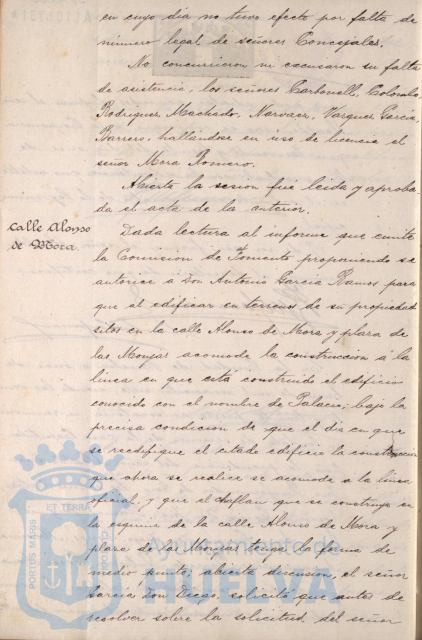 en cuyo dia no tuvo efecto por falta de
número legal de señores Concejales.
No concurrieron ni excusaron su falta
de asistencia, los señores Carbonell, Coronelo,
Rodriguez, Machado, Narvaez, Vazquez Garcia,
Barrero, hallándose en uso de licencia el
señor Mora Romero.
Abierta la sesión fué leida y aproba
da el acta de la anterior.
calle Alonso
de Mora.
Dada lectura al informe que emite
la Comision de Fomento proponiendo se
autorice á Don Antonio Garcia Ramos para
que al edificar en terrenos de su propiedad
sitos en la calle Alonso de Mora y plaza de
las Monjas acomode la construccion á la
linea en que está construido el edificio
conocido con el nombre de Palacio; bajo la
precisa condicion de que el dia en que
se reedifique el citado edificio la construccion
que ahora se realice se acomode a la linea
oficial; y que el chaflan que se construya en
la esquina de la calle Alonso de Mora y
plaza de las Monjas tenga la forma de
medio punto; abierta discusion, el señor
Garcia Don Diego, solicitó que antes de
resolver sobre la solicitud del señor
PORTUS MARIS
ET TERRÆ
CUSTODIA
Ayuntamiento de
HUELVA